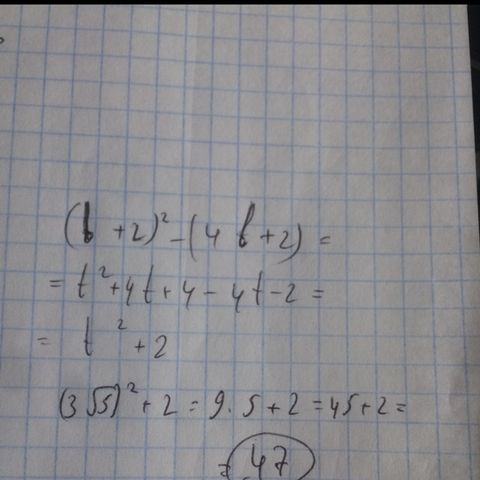 (t + 2)² - (4t + 2) =
= t² + 4t + 4 - 4t - 2 =
= t² + 2
(3√5)² + 2 = 9 · 5 + 2 = 45 + 2 =
= 47